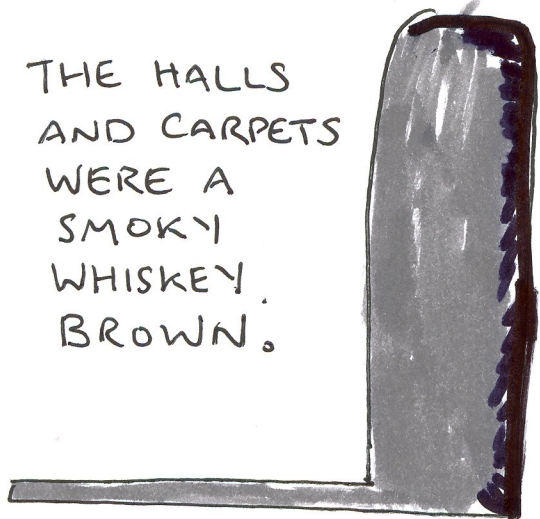 THE HALLS
AND CARPETS
WERE A
SMOKY
WHISKEY
BROWN.